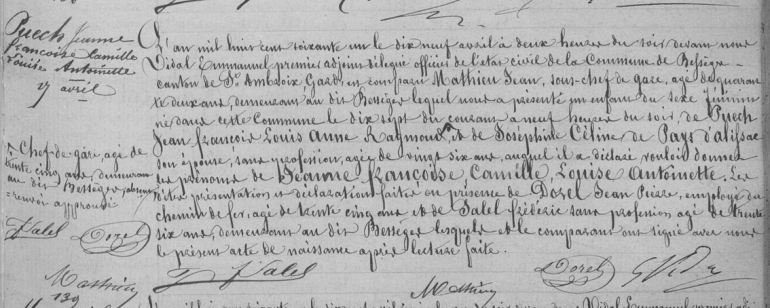 Puech Jeanne
françoise Camille
Louise Antoinette
17 avril
L'an mil huit cent soixante un le dix neuf avril à deux heures du soir devant nous
Vidal Emmanuel premier adjoint délégué officier de l'état civil de la Commune de Bessèges
canton de St Ambroix, Gard, en comparu Mathieu Jean, sous-chef de gare, agé de quaran
te deux ans, demeurant au dit Bessèges lequel nous a présenté un enfant du sexe féminin
né dans cette Commune le dix sept du courant à neuf heures du soir, de Puech
Jean françois Louis Anne Raymond et de Joséphine Céline de Pays d'alissac
son épouse, sans profession, agée de vingt six ans, auquel il a déclaré vouloir donner
les prénoms de Jeanne, françoise, Camille, Louise Antoinette. Les
dites présentation et déclaration faites en présence de Dorel Jean Pierre, employé du
chemin de fer, agé de trente cinq ans et de Salel frédéric sans profession agé de trente
six ans, demeurant au dit Bessèges lesquels et le comparant ont signé avec nous
le présent acte de naissance après lecture faite.
Chef-de-gare, agé de
trente cinq ans, demeurant
au dit Bessèges
renvoi approuvé
Salel Dorel
Mathieu
Salel
Mathieu
Dorel